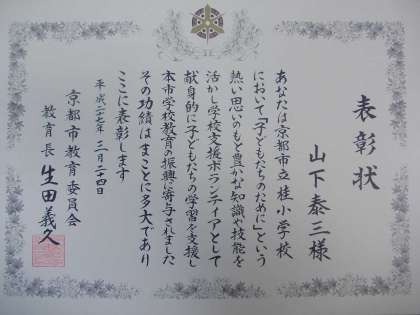 表彰状
山下泰三様
あなたは京都市立桂小学校
において「子どもたちのために」という
熱い思いのもと豊かな知識や技能を
活かし学校支援ボランティアとして
献身的に子どもたちの学習を支援し
本市学校教育の振興に寄与されました
その功績はまことに多大であり
ここに表彰します
平成二十七年三月二十四日
京都市教育委員会
教育長 生田義久